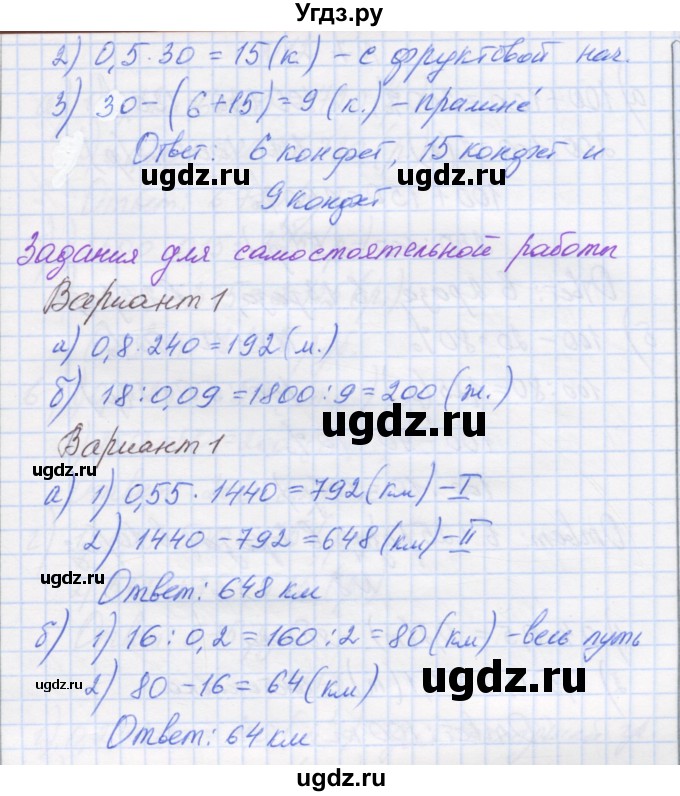 Угдз.ру
2) 0,5·30=15(к.) – с фруктовой нач.
3) 30–(6+15)=9(к.) – пралине
Ответ: 6 конфет, 15 конфет и
ugdz.ru ugdz.ru
9 конфет
Задания для самостоятельной работы
Вариант 1
а) 0,8·240=192(м.)
б) 18:0,09=1800:9=200(ж.)
ugdz.ru
Вариант 1
ugdz.ru
а) 1) 0,55·1440=792(км)–I
2) 1440–792=648(км)–II
ugdz.ru
Ответ: 648 км
б) 1) 16:0,2=160:2=80(км)–весь путь
ugdz.ru ugdz.ru
2) 80–16=64(км)
Ответ: 64 км
ugdz.ru